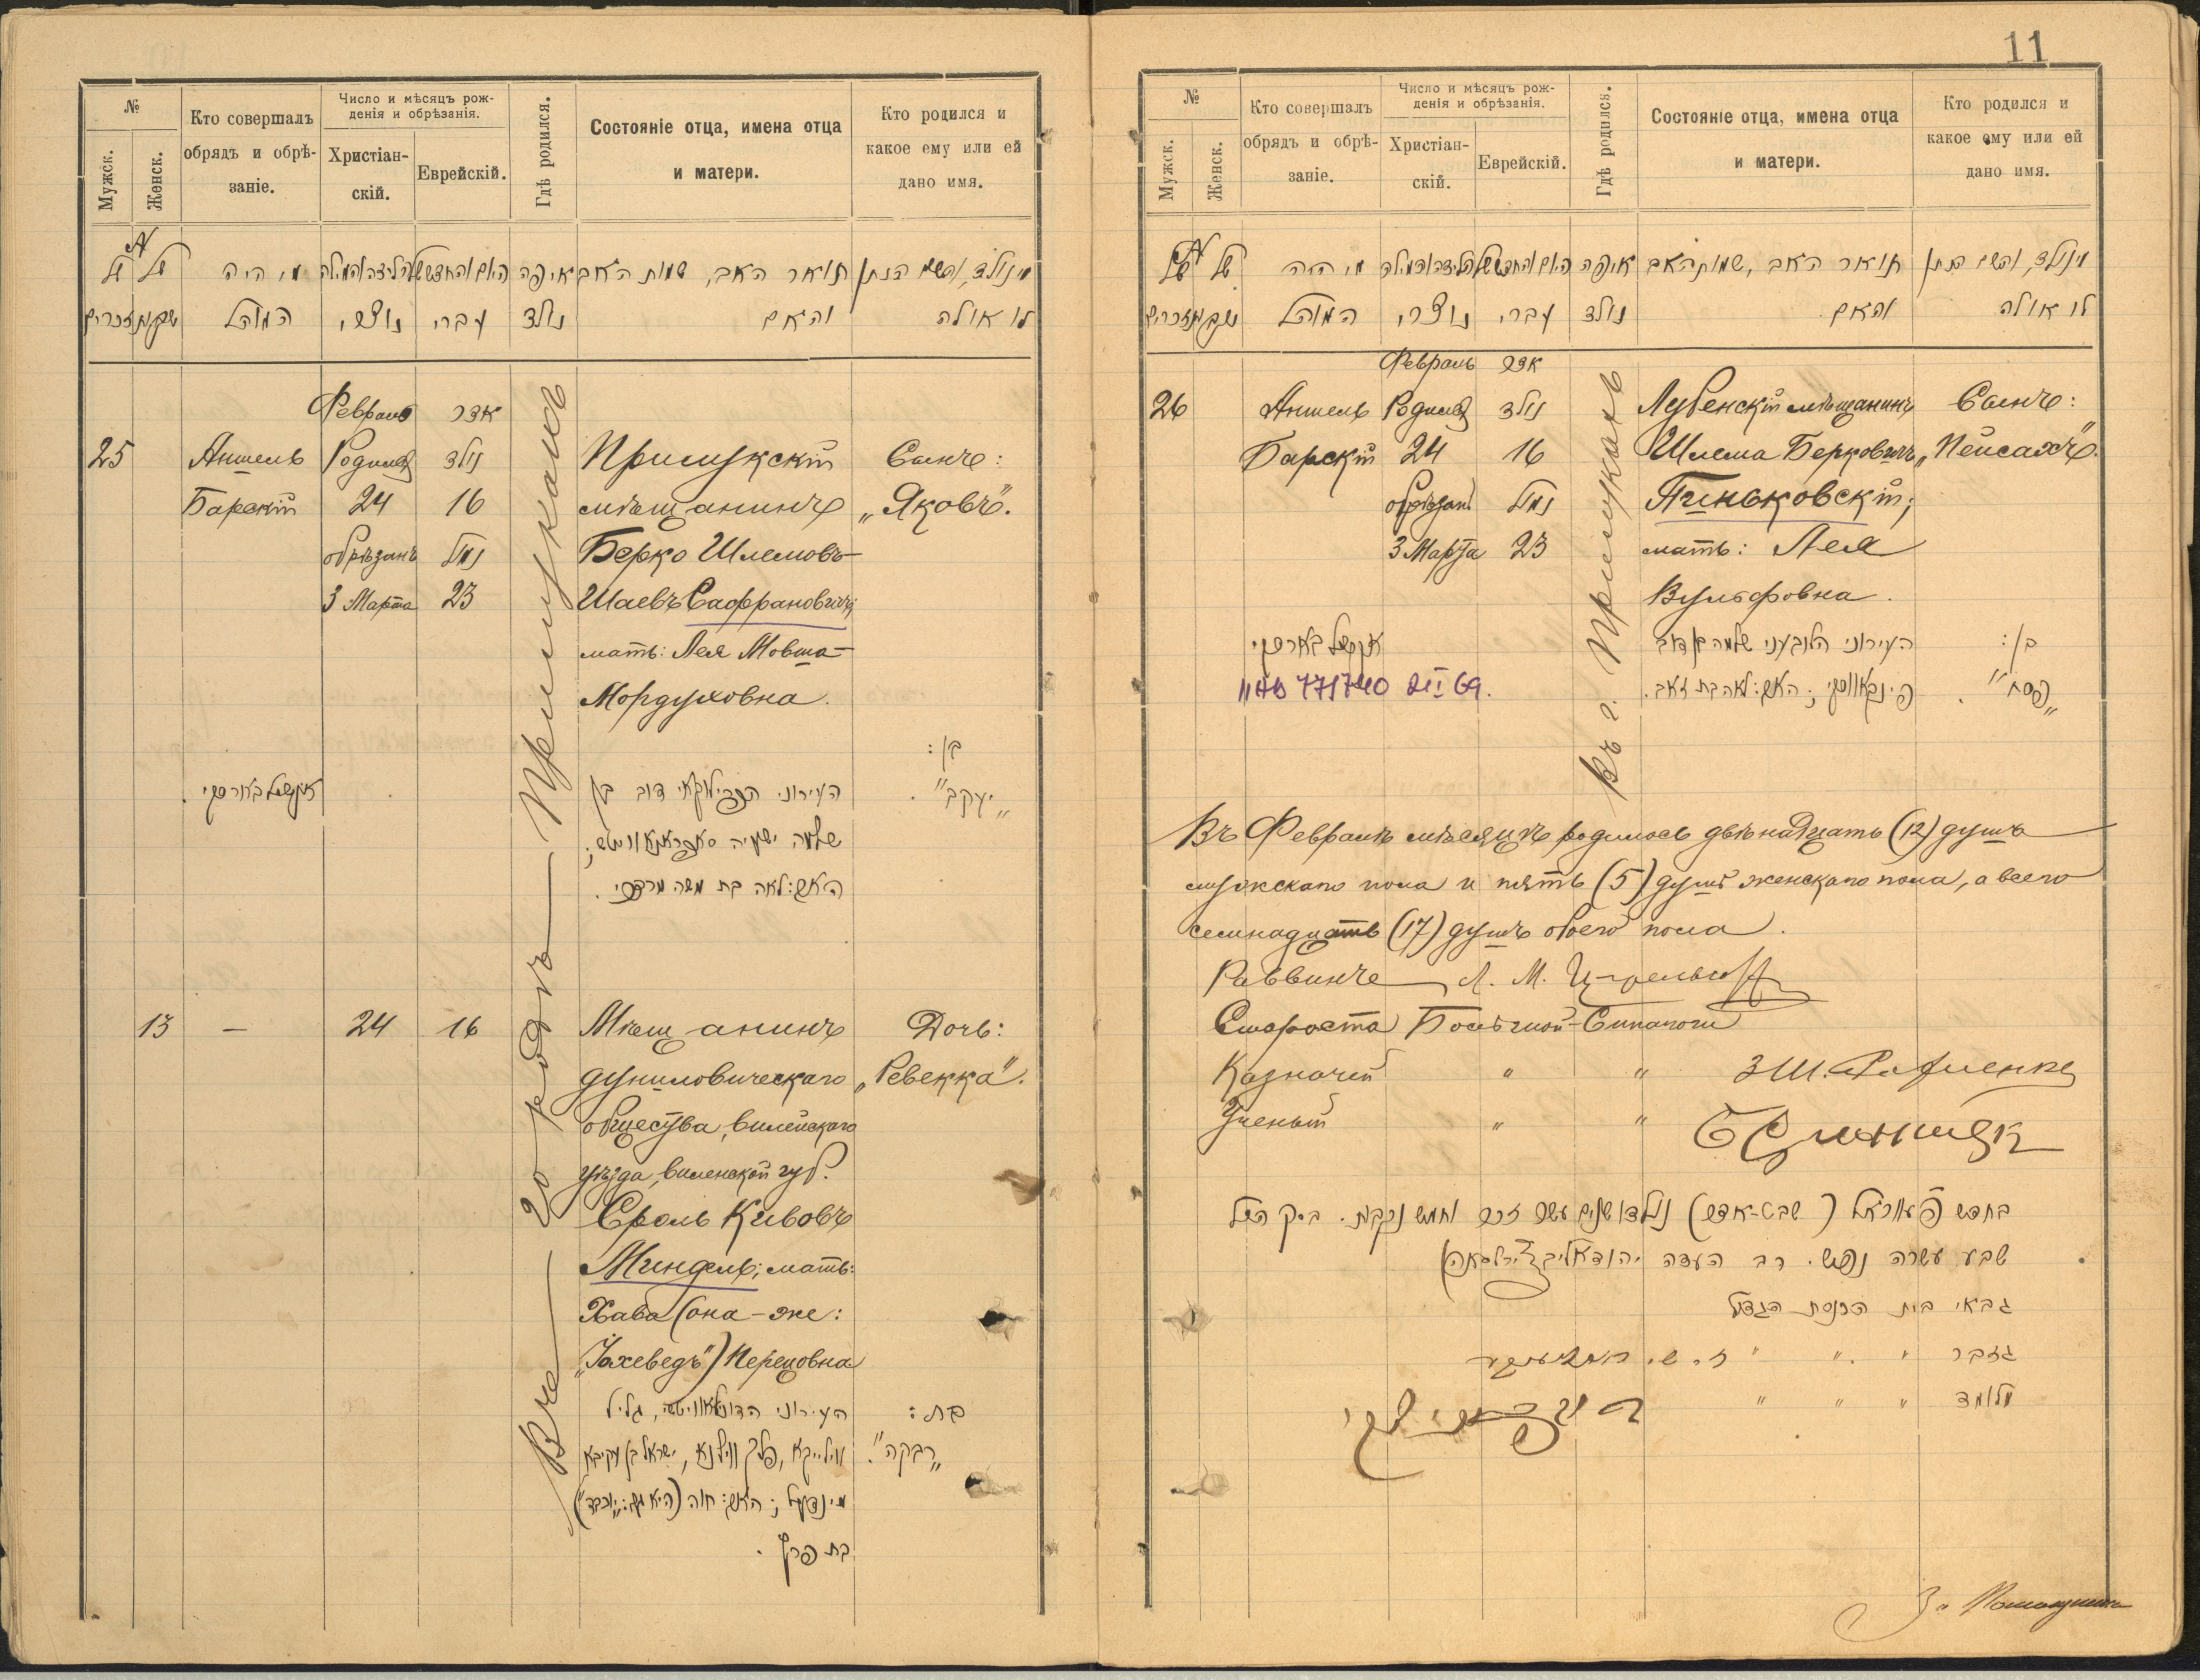 №
Мужск.
Женск.
Кто совершалъ
обрядъ и обрѣ-
заніе.
Число и мѣсяцъ рож-
денія и обрѣзанія.
Христіан-
скій.
Еврейскій.
Гдѣ родился.
Состояніе отца, имена отца
и матери.
Кто родился и
какое ему или ей
дано имя.
מי היה
המוהל
נוצרי
עברי
איפה
נולד
תואר האב, שמות האב
והאם
מי נולד, והשם הנתן
לו או לה
Въ городѣ Прилукахъ
Февраль אדר
25 Аншель Родился נולד Прилукскій Сынъ:
Барскій 24 16 мѣщанинъ „Яковъ“.
обрѣзанъ נמול Берко Шлемовъ-
3 Марта 23 Шаевъ Сафрановичъ;
мать: Лея Мовша-
Мордуховна.
בן:
אנשל בארסקי. העירוני הפרילוקאי דוב בן „יעקב“.
שלמה ישעיה סאפראנאוויטש;
האם: לאה בת משה מרדכי.
13 — 24 16 Мѣщанинъ Дочь:
дуниловическаго „Ревекка“.
общества, вилейскаго
уѣзда, виленской губ.
Сроль Кивовъ
Миндель; мать:
Хава (она-же:
„Іохеведъ“) Перецовна
העירוני הדונילאוויטשי, גליל בת:
ווילייקא, פלך ווילנא, ישראל בן עקיבא „רבקה“.
מינדעל; האם: חוה (היא גם: „יוכבד“)
בת פרץ.
11
№
Мужск.
Женск.
Кто совершалъ
обрядъ и обрѣ-
заніе.
Число и мѣсяцъ рож-
денія и обрѣзанія.
Христіан-
скій.
Еврейскій.
Гдѣ родился.
Состояніе отца, имена отца
и матери.
Кто родился и
какое ему или ей
дано имя.
מי היה
המוהל
נוצרי
עברי
איפה
נולד
תואר האב, שמות האב
והאם
מי נולד, והשם הנתן
לו או לה
Въ г. Прилукахъ
Февраль אדר
26 Аншель Родился נולד Лубенскій мѣщанинъ Сынъ:
Барскій 24 16 Шлема Берковичъ „Пейсахъ“.
обрѣзанъ נמול Пиньковскій;
3 Марта 23 мать: Лея
Вульфовна.
אנשל בארסקי העירוני הלובעני שלמה בן דוב בן:
771740 פינקאווסקי; האם: לאה בת זאב. „פסח“.
Въ Февралѣ мѣсяцѣ родилось двѣнадцать (12) душъ
мужскаго пола и пять (5) душъ женскаго пола, а всего
семнадцать (17) душъ обоего пола.
Раввинъ Л. М. Цирельсонъ
Староста Большой Синагоги
Казначей " "
Ученый " "
בחדש פעווראל (שבט-אדר) נולדו שנים עשר זכר וחמש נקבות. בסך הכל
שבע עשרה נפש. רב העדה יהודא ליב צירלסאהן
גבאי בית הכנסת הגדול
גזבר " " "
מלומד " " "